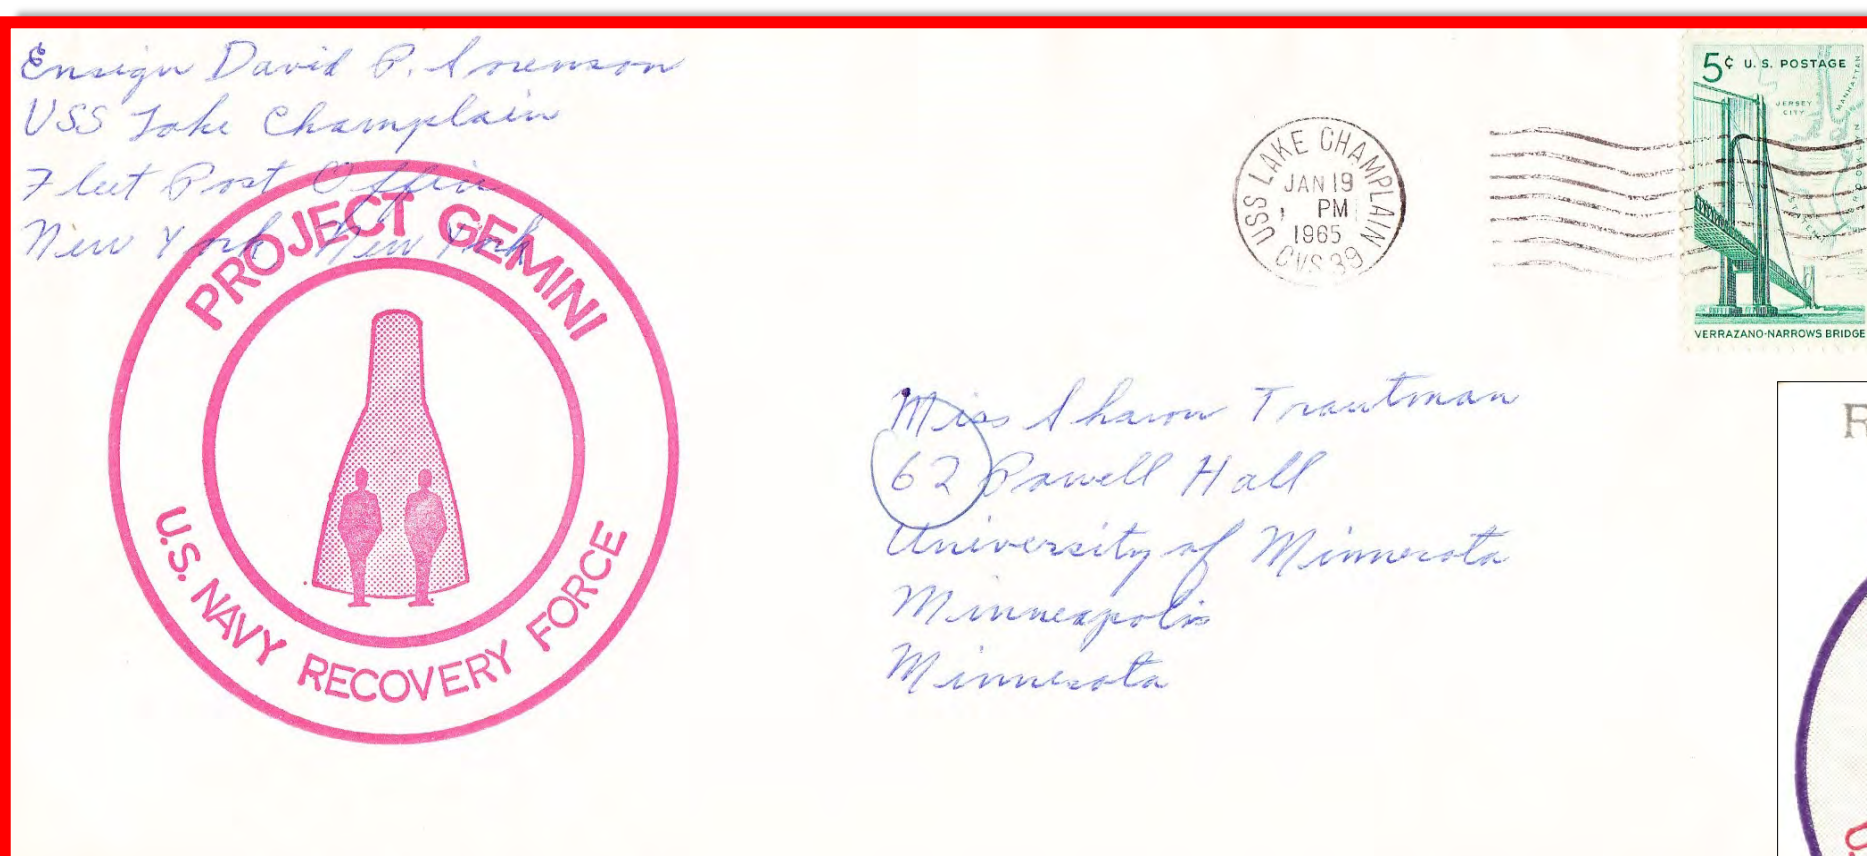 Ensign David P. Sorenson
USS Lake Champlain
Fleet Post Office
New York New York
PROJECT GEMINI
U.S. NAVY RECOVERY FORCE
USS LAKE CHAMPLAIN
JAN 19
PM
1965
CVS 39
5¢ U.S. POSTAGE
JERSEY
CITY
MANHATTAN
BROOKLYN
VERRAZANO-NARROWS BRIDGE
Miss Sharon Trautman
62 Powell Hall
University of Minnesota
Minneapolis
Minnesota